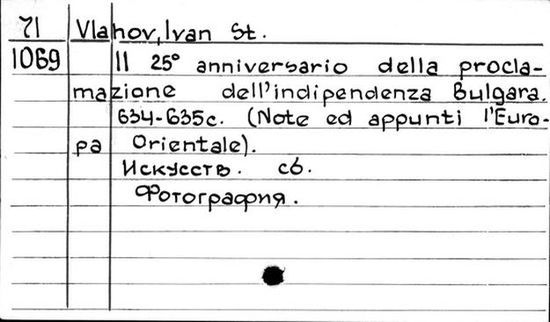 71 Vlahov, Ivan St.
1069 Il 25° anniversario della procla-
mazione dell'indipendenza Bulgara.
634-635c. (Note ed appunti l'Euro-
pa Orientale).
Искусств. сб.
Фотография.